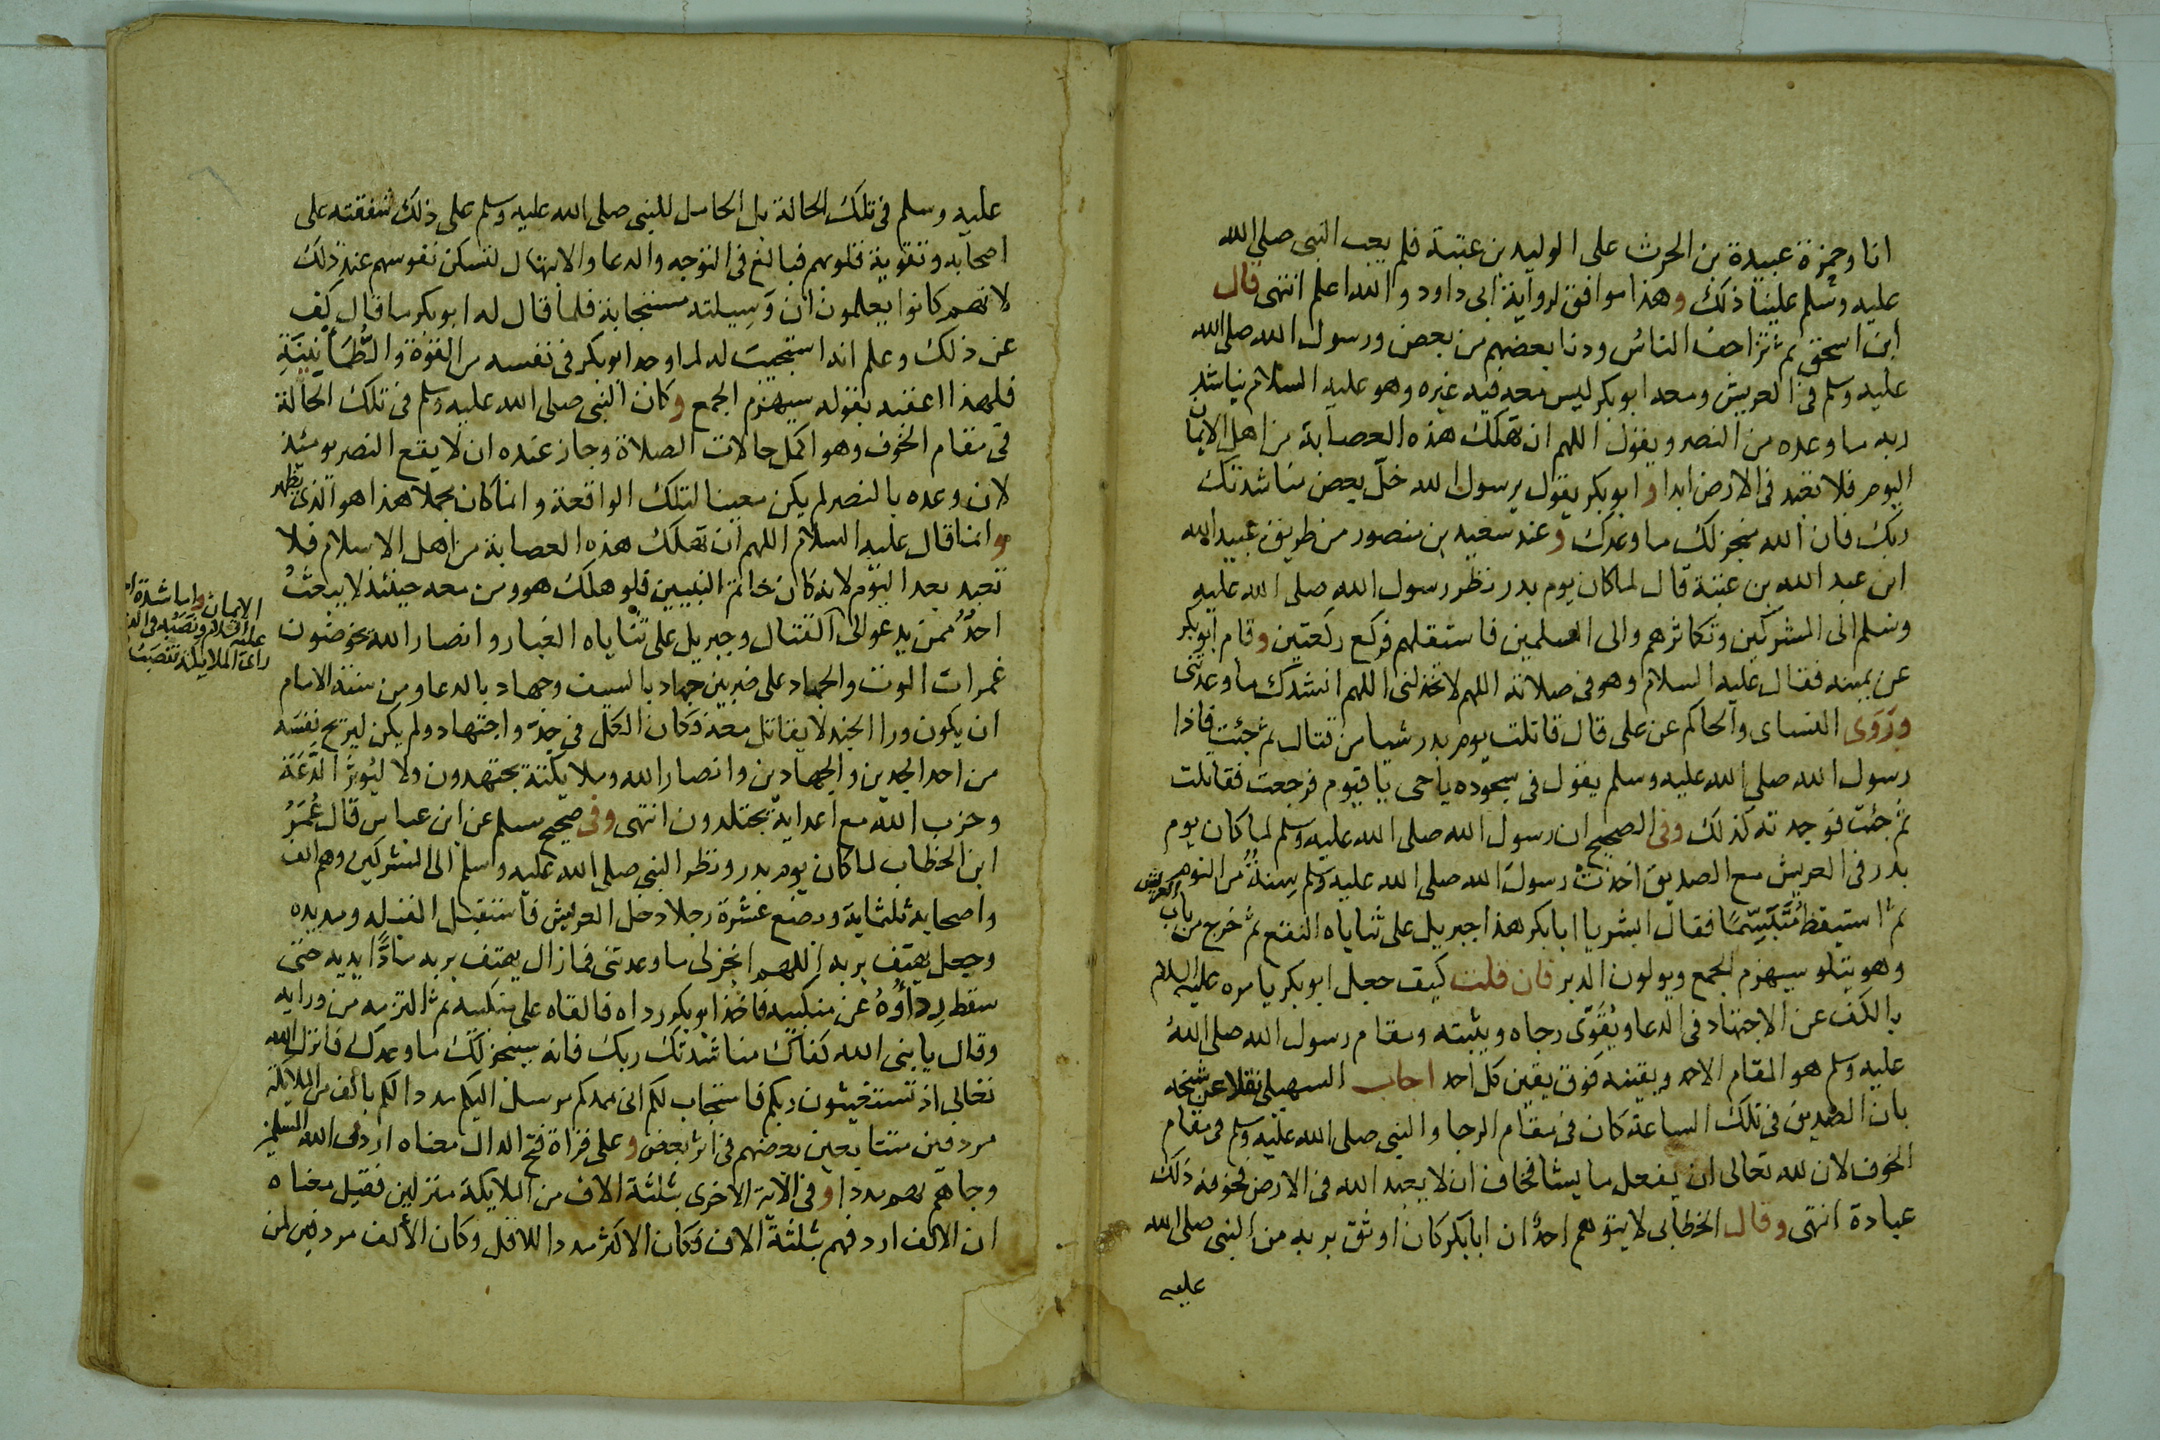 انا وحمزة عبيدة بن الحرث على الوليد بن عتبة فلم يعب النبى صلى الله
عليه وسلم علينا ذلك وهذا موافق لرواية ابى داود والله اعلم انتهى قال
ابن اسحق ثم تزاحف الناس ودنا بعضهم من بعض ورسول الله صلى الله
عليه وسلم فى العريش ومعه ابو بكر ليس معه فيه غيره وهو عليه السلام يناشد
ربه ما وعده من النصر ويقول اللهم ان تهلك هذه العصابة من اهل الايمان
اليوم فلا تعبد فى الارض ابدا وابو بكر يقول يرسول الله خل بعض مناشدتك
ربك فان الله منجز لك ما وعدك وعند سعيد بن منصور من طريق عبيد الله
ابن عبد الله بن عتبة قال لما كان يوم بدر نظر رسول الله صلى الله عليه
وسلم الى المشركين وتكاثرهم والى المسلمين فاستقلهم فركع ركعتين وقام ابو بكر
عن يمينه فقال عليه السلام وهو فى صلاته اللهم لا تخذلنى اللهم انشدك ما وعدتنى
وروى النساى والحاكم عن على قال قاتلت يوم بدر شيا من قتال ثم جئت فاذا
رسول الله صلى الله عليه وسلم يقول فى سجوده ياحى يا قيوم فرجعت فقاتلت
ثم جئت فوجدته كذلك وفى الصحيح ان رسول الله صلى الله عليه وسلم لما كان يوم
بدر فى العريش مع الصديق اخذت رسول الله صلى الله عليه وسلم سنة من النوم
ثم استيقظ متبسما فقال ابشر يا ابا بكر هذا جبريل على ثناياه النقع ثم خرج من باب العريش
وهو يتلو سيهزم الجمع ويولون الدبر فان قلت كيف جعل ابو بكر يامره عليه السلام
بالكف عن الاجتهاد فى الدعا ويقوى رجاه ويثبته ومقام رسول الله صلى الله
عليه وسلم هو المقام الاحمد ويقينه فوق يقين كل احد اجاب السهيلى نقلا عن شيخه
بان الصديق فى تلك الساعة كان فى مقام الرجا والنبى صلى الله عليه وسلم فى مقام
الخوف لان لله تعالى ان يفعل ما يشا فخاف ان لا يعبد الله فى الارض فخوفه ذلك
عبادة انتهى وقال الخطابى لا يتوهم احد ان ابا بكر كان اوثق بربه من النبى صلى الله
عليه
عليه وسلم فى تلك الحالة بل الحامل للنبى صلى الله عليه وسلم على ذلك شفقته على
اصحابه وتقوية قلوبهم فبالغ فى التوجه والدعا والابتهال لتسكن نفوسهم عند ذلك
لانهم كانوا يعلمون ان وسيلته مستجابة فلما قال له ابو بكر ما قال كف
عن ذلك وعلم انه استجيب له لما وجد ابو بكر فى نفسه من القوة والطمأنينة
فلهذا اعقبه بقوله سيهزم الجمع وكان النبى صلى الله عليه وسلم فى تلك الحالة
فى مقام الخوف وهو اكمل حالات الصلاة وجاز عنده ان لا يقع النصر يومئذ
لان وعده بالنصر لم يكن معينا لتلك الواقعة وانما كان مجملا هذا هو الذى يظهر
وانما قال عليه السلام اللهم ان تهلك هذه العصابة من اهل الاسلام فلا
تعبد بعد اليوم لانه كان خاتم النبيين فلو هلك هو ومن معه حينئذ لا يبعث
احد ممن يدعو الى الايمان واما شدة اجتهاده
عليه السلام ونصبه فى الدعا فانه
راى الملايكة تنصب فى
القتال وجبريل على ثناياه الغبار وانصار الله يخوضون
غمرات الموت والجهاد على ضربين جهاد بالسيف وجهاد بالدعا ومن سنة الامام
ان يكون ورا الجند لا يقاتل معه فكان الكل فى جد واجتهاد ولم يكن ليريح نفسه
من احد الجدين والجهادين وانصار الله وملايكته يجتهدون ولا ليؤثر الدعة
وحزب الله مع اعدايه يجتلدون انتهى وفى صحيح مسلم عن ابن عباس قال عمر
ابن الخطاب لما كان يوم بدر ونظر النبى صلى الله عليه وسلم الى المشركين وهم الف
واصحابه ثلثماية وبضع عشرة رجلا دخل العريش فاستقبل القبلة ومد يده
وجعل يهتف بربه اللهم انجز لى ما وعدتنى فما زال يهتف بربه مادا يديه حتى
سقط رداؤه عن منكبيه فاخذ ابو بكر رداه فالقاه على منكبيه ثم التزمه من ورايه
وقال يا نبى الله كفاك مناشدتك ربك فانه سينجز لك ما وعدك فانزل الله
تعالى اذ تستغيثون ربكم فاستجاب لكم انى ممدكم مرسل اليكم مددا لكم بالف من الملايكة
مردفين متتابعين بعضهم فى اثر بعض وعلى قراة فتح الدال معناه اردف الله المسلمين
وجاهم بهم مددا وفى الاية الاخرى بثلثة الاف من الملايكة منزلين فقيل معناه
ان الالف اردفهم بثلثة الاف فكان الاكثر مددا للاقل وكان الألف مردفين لمن